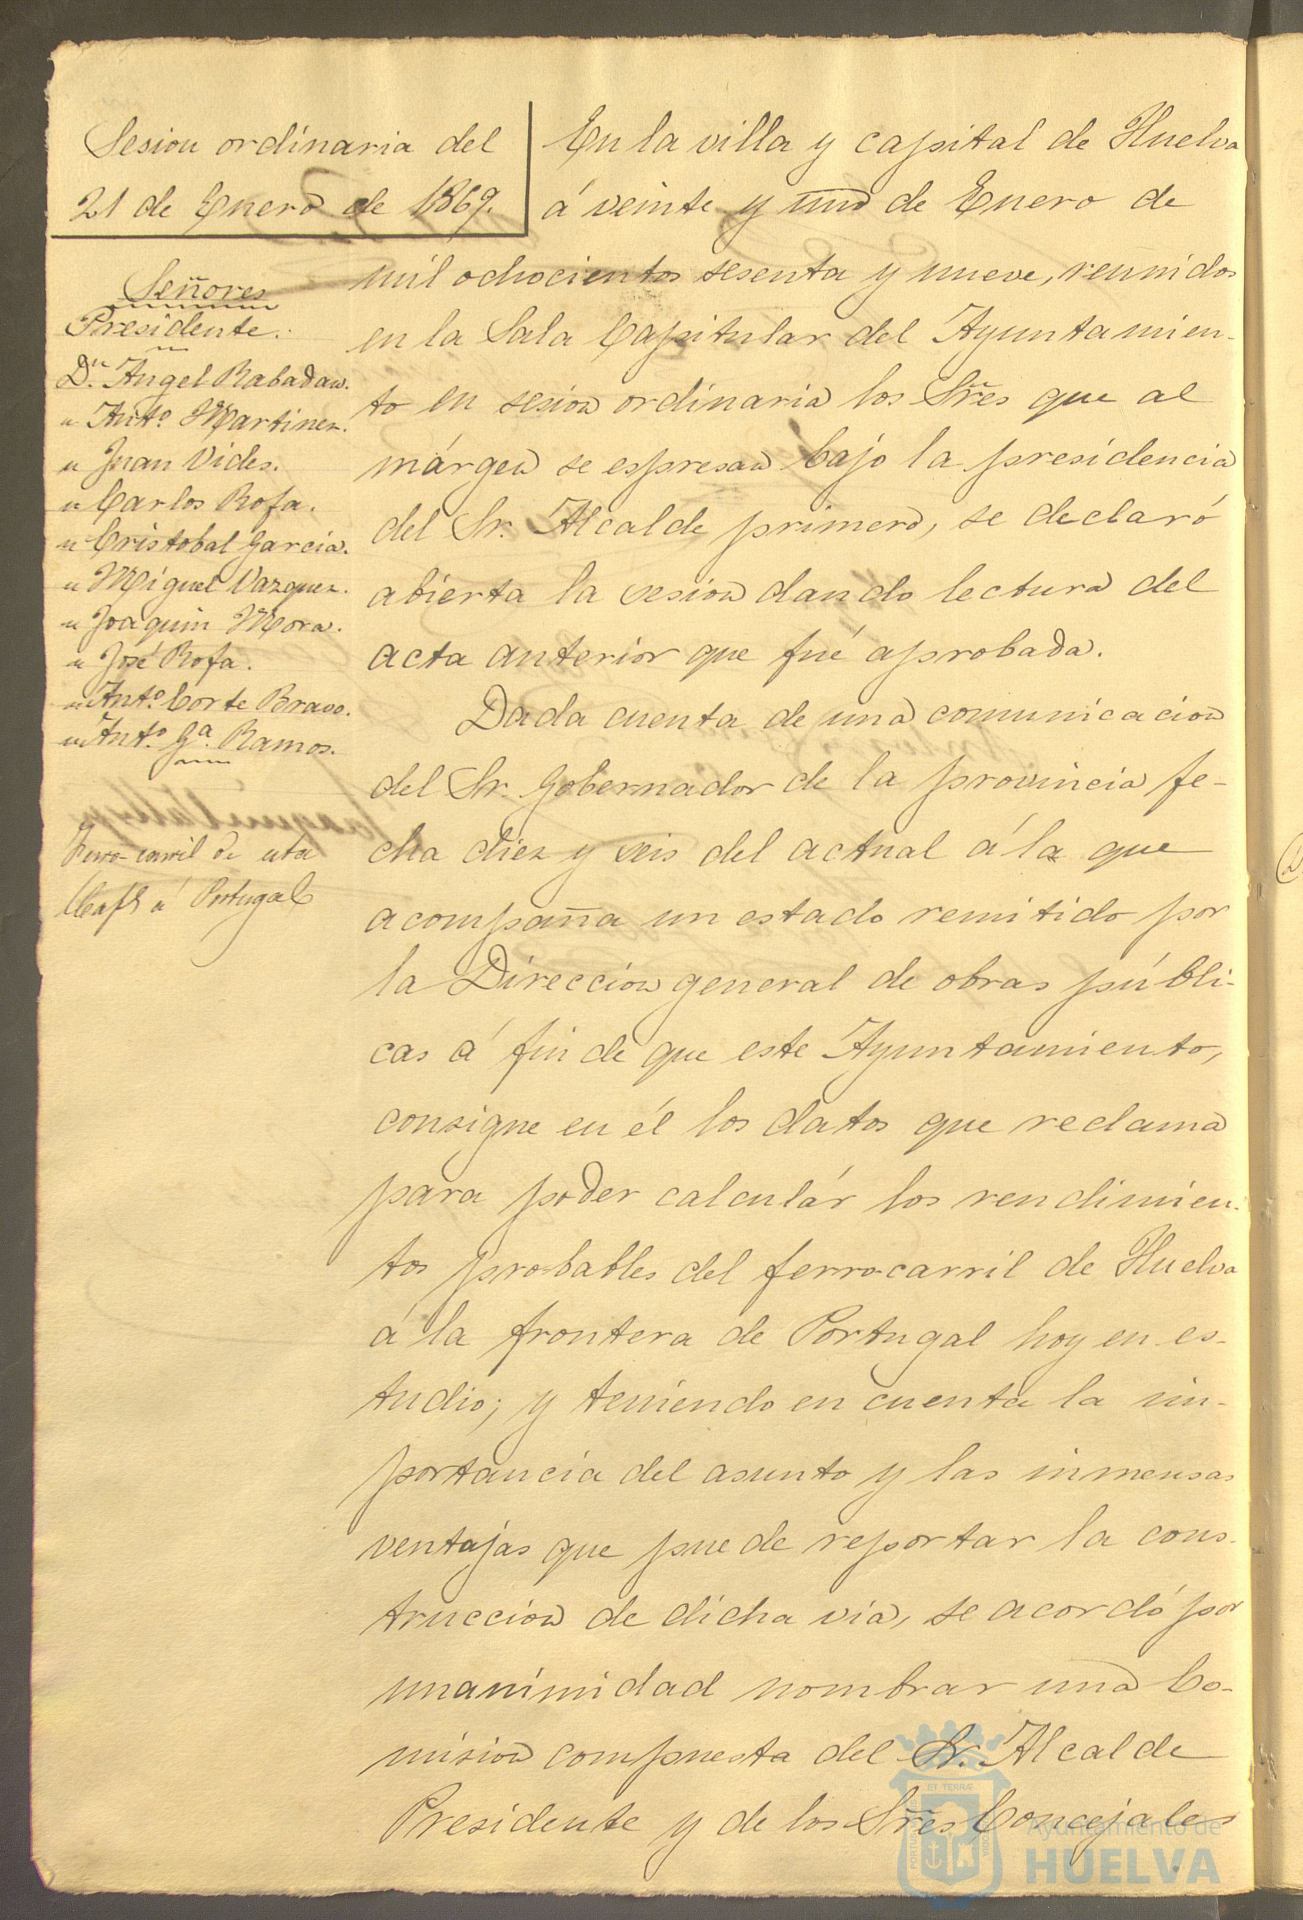 Sesion ordinaria del
21 de Enero de 1869.
Señores
Presidente.
Dn. Angel Rabadan.
" Anto. Martinez.
" Juan Vides.
" Carlos Rofa.
" Cristobal Garcia.
" Miguel Vazquez.
" Joaquin Mora.
" José Rofa.
" Anto. Corte Bravo.
" Anto. Ga. Ramos.
Ferro-carril de esta
á Portugal
En la villa y capital de Huelva
á veinte y uno de Enero de
mil ochocientos sesenta y nueve, reunidos
en la Sala Capitular del Ayuntamien-
to en sesion ordinaria los Sres que al
márgen se espresan bajo la presidencia
del Sr. Alcalde primero, se declaró
abierta la sesion dando lectura del
acta anterior que fué aprobada.
Dada cuenta de una comunicacion
del Sr. Gobernador de la provincia fe-
cha diez y seis del actual á la que
acompaña un estado remitido por
la Direccion general de obras públi-
cas á fin de que este Ayuntamiento,
consigne en él los datos que reclama
para poder calculár los rendimien-
tos probables del ferro-carril de Huelva
á la frontera de Portugal hoy en es-
tudio; y teniendo en cuenta la im-
portancia del asunto y las inmensas
ventajas que puede reportar la cons-
truccion de dicha via, se acordó por
unanimidad nombrar una Co-
mision compuesta del Sr. Alcalde
Presidente y de los Sres Concejales
Ayuntamiento de
HUELVA